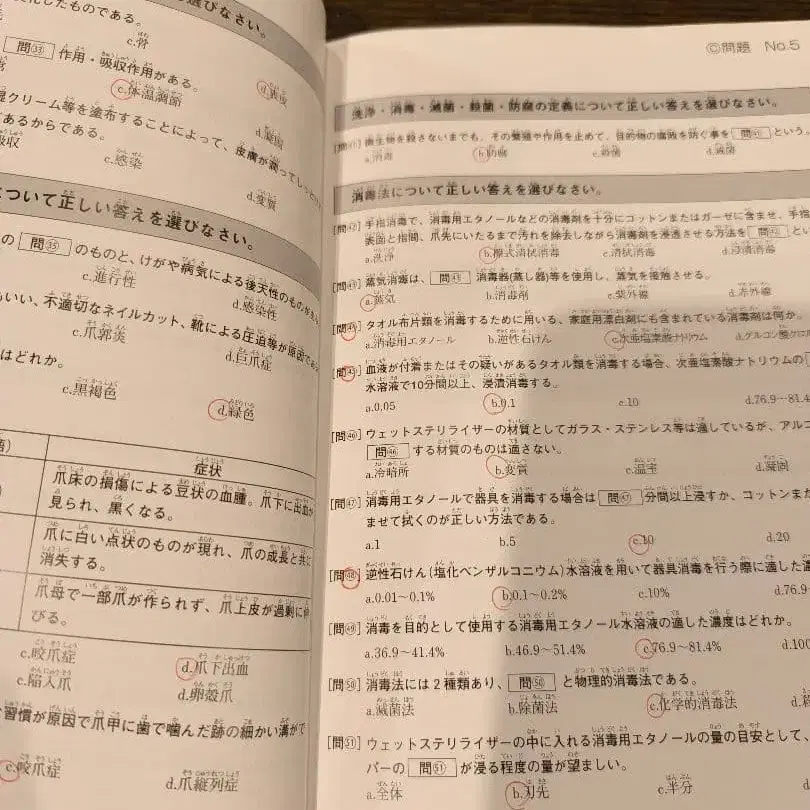 したものである。
の選びなさい。
c.骨
問㉝ 作用・吸収作用がある。
c.体温調節
d.表皮
クリーム等を塗布することによって、皮膚が潤って
であるからである。
d.凝固
吸収
c.感染
d.変質
について正しい答えを選びなさい。
の 問㉟ のものと、けがや病気による後天性のものがあ
c.進行性
d.感染性
もいい、不適切なネイルカット、靴による圧迫等が原因であ
c.爪郭炎
d.巨爪症
はどれか。
c.黒褐色
d.緑色
症状
爪床の損傷による豆状の血腫。爪下に出血が
見られ、黒くなる。
爪に白い点状のものが現れ、爪の成長と共に
消失する。
爪母で一部爪が作られず、爪上皮が過剰に伸
びる。
c.咬爪症
d.爪下出血
c.陥入爪
d.卵殻爪
習慣が原因で爪甲に歯で噛んだ跡の細かい溝がで
c.咬爪症
d.爪縦列症
Ⓒ問題 No.5
洗浄・消毒・滅菌・殺菌・防腐の定義について正しい答えを選びなさい。
[問㊶] 微生物を殺さないまでも、その繁殖や作用を止めて、目的物の腐敗を防ぐ事を 問㊶ という。
a.消毒 b.防腐 c.殺菌 d.滅菌
消毒法について正しい答えを選びなさい。
[問㊷] 手指消毒で、消毒用エタノールなどの消毒剤を十分にコットンまたはガーゼに含ませ、手指
表面と指間、爪先にいたるまで汚れを除去しながら消毒剤を浸透させる方法を 問㊷ とい
a.洗浄 b.擦式清拭消毒 c.清拭消毒 d.浸漬消毒
[問㊸] 蒸気消毒は、 問㊸ 消毒器(蒸し器)等を使用し、蒸気を接触させる。
a.蒸気 b.消毒剤 c.紫外線 d.赤外線
[問㊹] タオル布片類を消毒するために用いる、家庭用漂白剤にも含まれている消毒剤は何か。
a.消毒用エタノール b.逆性石けん c.次亜塩素酸ナトリウム d.グルコン酸クロ
[問㊺] 血液が付着またはその疑いがあるタオル類を消毒する場合、次亜塩素酸ナトリウムの
水溶液で10分間以上、浸漬消毒する。
a.0.05 b.0.1 c.10 d.76.9～81.4
[問㊻] ウェットステリライザーの材質としてガラス・ステンレス等は適しているが、アルコ
問㊻ する材質のものは適さない。
a.冷暗所 b.変質 c.温室 d.凝固
[問㊼] 消毒用エタノールで器具を消毒する場合は 問㊼ 分間以上浸すか、コットンまた
ませて拭くのが正しい方法である。
a.1 b.5 c.10 d.20
[問㊽] 逆性石けん(塩化ベンザルコニウム)水溶液を用いて器具消毒を行う際に適した濃
a.0.01～0.1% b.0.1～0.2% c.10% d.76.9
[問㊾] 消毒を目的として使用する消毒用エタノール水溶液の適した濃度はどれか。
a.36.9～41.4% b.46.9～51.4% c.76.9～81.4% d.100
[問㊿] 消毒法には2種類あり、 問㊿ と物理的消毒法である。
a.滅菌法 b.除菌法 c.化学的消毒法
[問51] ウェットステリライザーの中に入れる消毒用エタノールの量の目安として、
バーの 問51 が浸る程度の量が望ましい。
a.全体 b.刃先 c.半分